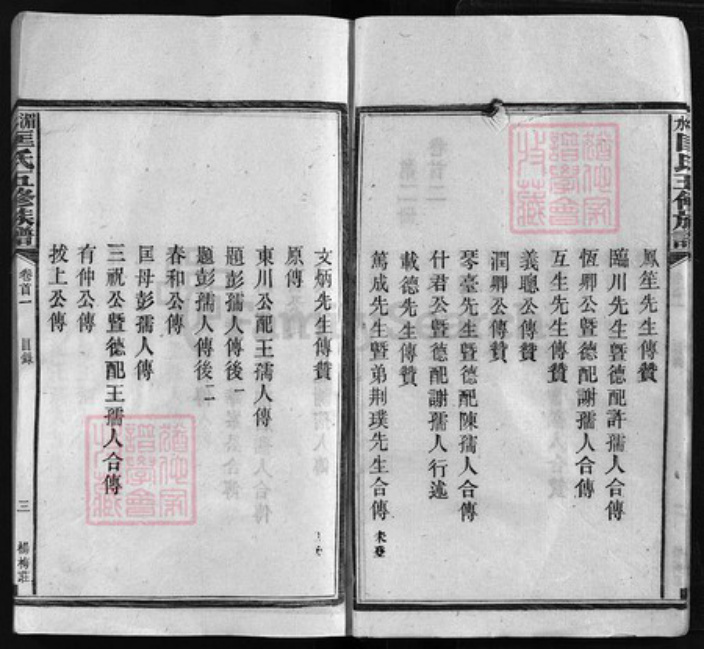 鳳笙先生傳贊
臨川先生暨德配許孺人合傳
恆卿公暨德配謝孺人合傳
互生先生傳贊
義聰公傳贊
潤卿公傳贊
琴臺先生暨德配陳孺人合傳
什君公暨德配謝孺人行述
載德先生傳贊
萬成先生暨弟荆璞先生合傳 未登
文炳先生傳贊
原傳
東川公配王孺人傳
題彭孺人傳後一
題彭孺人傳後二
春和公傳
匡母彭孺人傳
三祝公暨德配王孺人合傳
有仲公傳
拔上公傳
湄水匡氏五修族譜
卷首一
目錄
三
楊梅莊